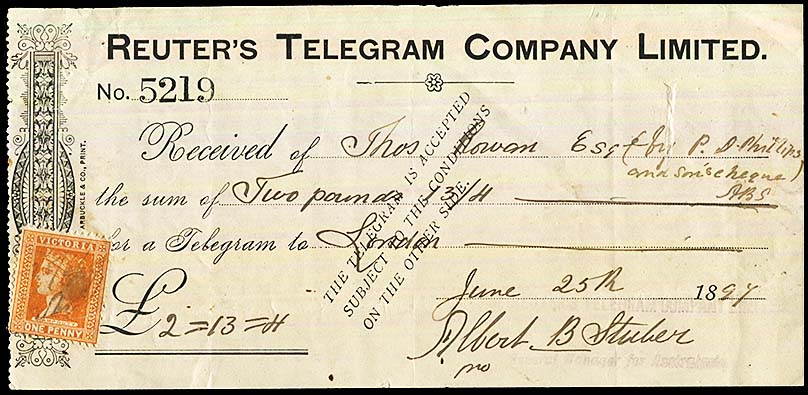 REUTER'S TELEGRAM COMPANY LIMITED.
No. 5219
Received of Thos Rowan Esq (for P. D. Phillips
and son's cheque)
ABS
the sum of Two pounds 13/4
for a Telegram to London
THE TELEGRAM IS ACCEPTED
SUBJECT TO THIS CONDITIONS
ON THE OTHER SIDE.
June 25th 1897
£2=13=4
Albert B Stuber
General Manager for Australasia
ARBUCKLE & CO., PRINT.
VICTORIA
ONE PENNY